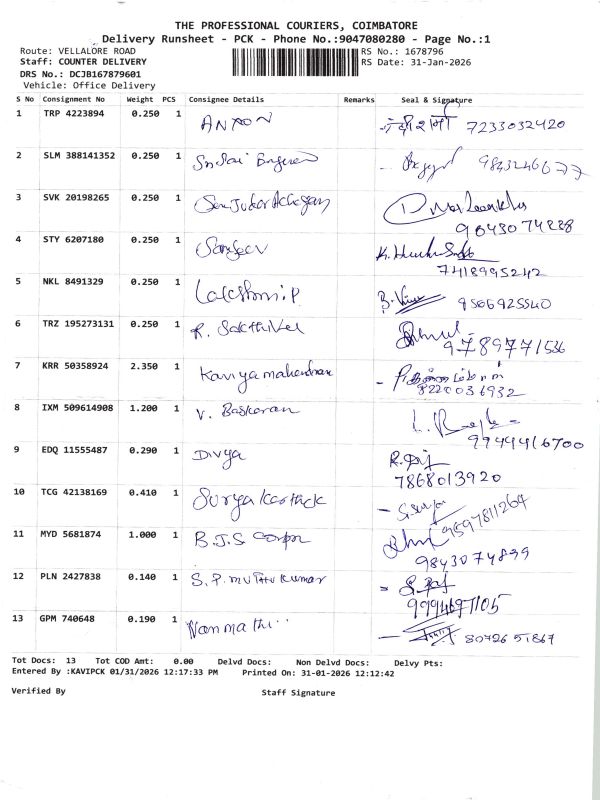 THE PROFESSIONAL COURIERS, COIMBATORE
Delivery Runsheet - PCK - Phone No.:9047080280 - Page No.:1
Route: VELLALORE ROAD
RS No.: 1678796
Staff: COUNTER DELIVERY
RS Date: 31-Jan-2026
DRS No.: DCJB167879601
Vehicle: Office Delivery
S No Consignment No Weight PCS Consignee Details Remarks Seal & Signature
1 TRP 4223894 0.250 1 ANTON 7233032420
2 SLM 388141352 0.250 1 9843246677
3 SVK 20198265 0.250 1 9043074228
4 STY 6207180 0.250 1 Sanjeev 7418995242
5 NKL 8491329 0.250 1 Lakshmi.P B. 9566925540
6 TRZ 195273131 0.250 1 R. Sakthivel 9789771536
7 KRR 50358924 2.350 1 Kaviya mahendran 8220036932
8 IXM 509614908 1.200 1 V. Baskaran 9944416700
9 EDQ 11555487 0.290 1 Divya 7868013920
10 TCG 42138169 0.410 1 Surya Karthick 9597811264
11 MYD 5681874 1.000 1 B.J.S Corpn 9843074899
12 PLN 2427838 0.140 1 S.P. muthu kumar 9994697105
13 GPM 740648 0.190 1 Nanmathi 8072651867
Tot Docs: 13 Tot COD Amt: 0.00 Delvd Docs: Non Delvd Docs: Delvy Pts:
Entered By :KAVIPCK 01/31/2026 12:17:33 PM Printed On: 31-01-2026 12:12:42
Verified By Staff Signature